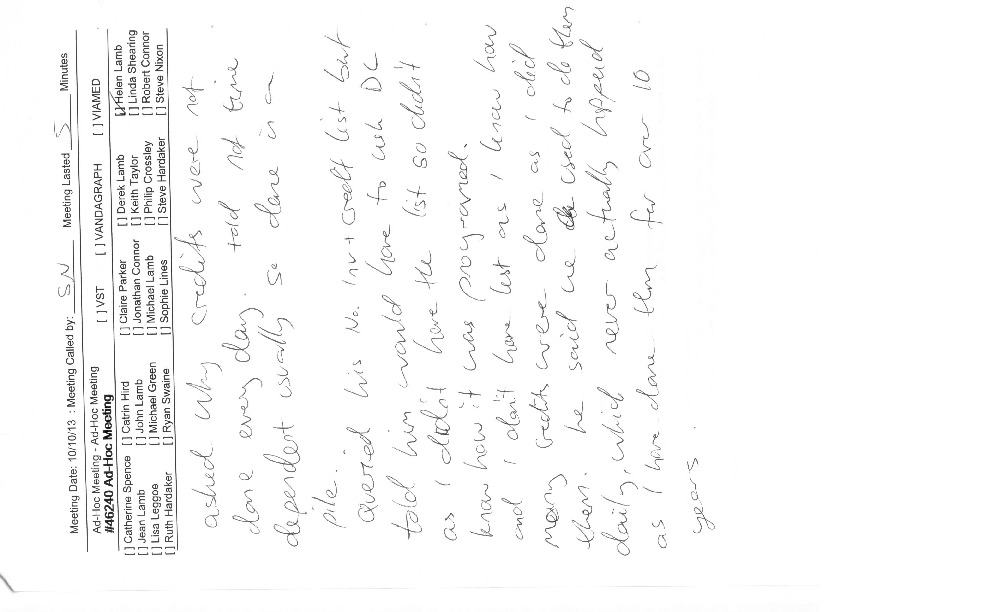 Meeting Date: 10/10/13 : Meeting Called by: SN Meeting Lasted 5 Minutes
Ad-Hoc Meeting - Ad-Hoc Meeting [ ] VST [ ] VANDAGRAPH [ ] VIAMED
#46240 Ad-Hoc Meeting
[ ] Catherine Spence [ ] Catrin Hird [ ] Claire Parker [ ] Derek Lamb [✓] Helen Lamb
[ ] Jean Lamb [ ] John Lamb [ ] Jonathan Connor [ ] Keith Taylor [ ] Linda Shearing
[ ] Lisa Leggoe [ ] Michael Green [ ] Michael Lamb [ ] Philip Crossley [ ] Robert Connor
[ ] Ruth Hardaker [ ] Ryan Swaine [ ] Sophie Lines [ ] Steve Hardaker [ ] Steve Nixon
asked why credits were not
done every day. told not time
dependent usually so done in a
pile.
queried his No. Inv + credit list but
told him would have to ask DC
as I didn't have the list so didn't
know how it was programed.
and I don't have list as I know how
many credits were done as I did
them. he said he used to do them
daily, which never actually happed
as I have done them for over 10
years.